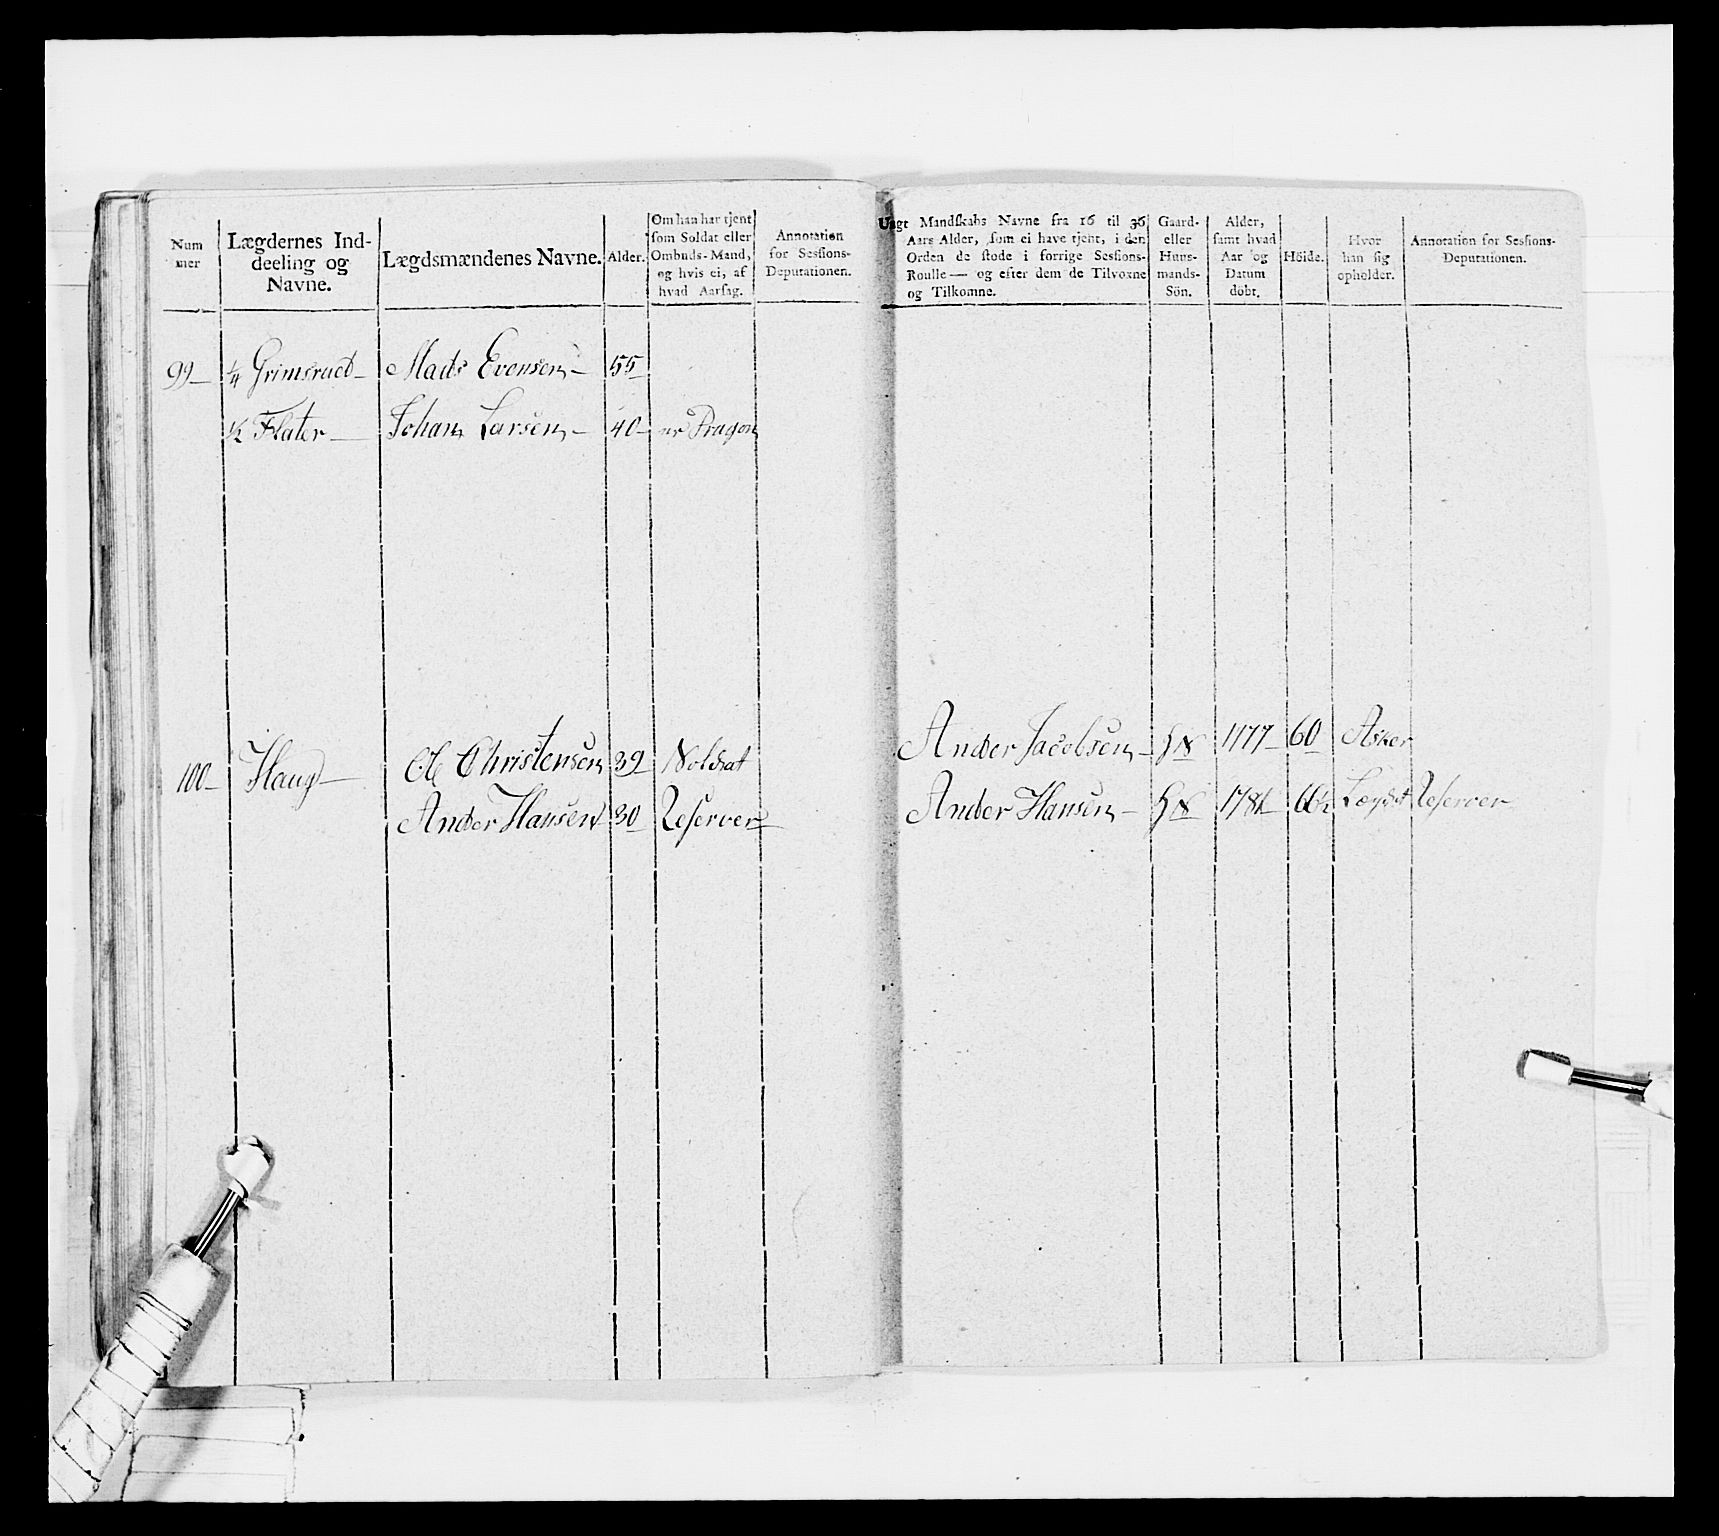 Num
mer
Lægdernes Ind-
deeling og
Navne.
Lægdsmændenes Navne.
Alder.
Om han har tjent
som Soldat eller
Ombuds-Mand,
og hvis ei, af
hvad Aarsag.
Annotation
for Sessions-
Deputationen.
Ungt Mandskabs Navne fra 16 til 36
Aars Alder, som ei have tjent, i den
Orden de stode i forrige Sessions-
Roulle — og efter dem de Tilvoxne
og Tilkomne.
Gaard-
eller
Huus-
mands-
Sön.
Alder,
samt hvad
Aar og
Datum
döbt.
Höide.
Hvor
han sig
opholder.
Annotation for Sessions-
Deputationen.
99 — 1/4 Grimsrud — Mads Evensen — 55
1/2 Flater — Johan Larsen — 40 — er Dragon
100 — Haug — Ole Christensen 39 Soldat
Ander Hansen 30 Reserver
Ander Jacobsen — HS 1777 60 Asker
Ander Hansen — HS Lægdet Reserver